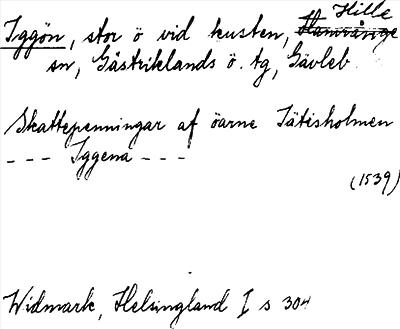 Hille
Iggön, stor ö vid kusten, Hamrånge
sn, Gästriklands ö. tg, Gävleb.
Skattepenningar af öarne Tätisholmen
--- Iggena ---
(1539)
Widmark, Helsingland I s 304